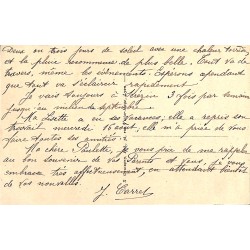 deux ou trois jours de soleil avec une chaleur torride
et la pluie recommence de plus belle. Tout va de
travers, même les évènements. Espérons cependant
que tout va s'éclaircir rapidement.
Je vais toujours à 3 fois par semaine
jusqu'au milieu de septembre.
Ma Lisette a eu ses vacances; elle a repris son
travail mercredi 16 août, elle m'a priée de vous
faire toutes ses amitiés.
Ma chère Paulette, je vous prie de me rappeler
au bon souvenir de vos Parents et vous, je vous
embrasse très affectueusement, en attendant bientôt
de vos nouvelles.
J. Carrel